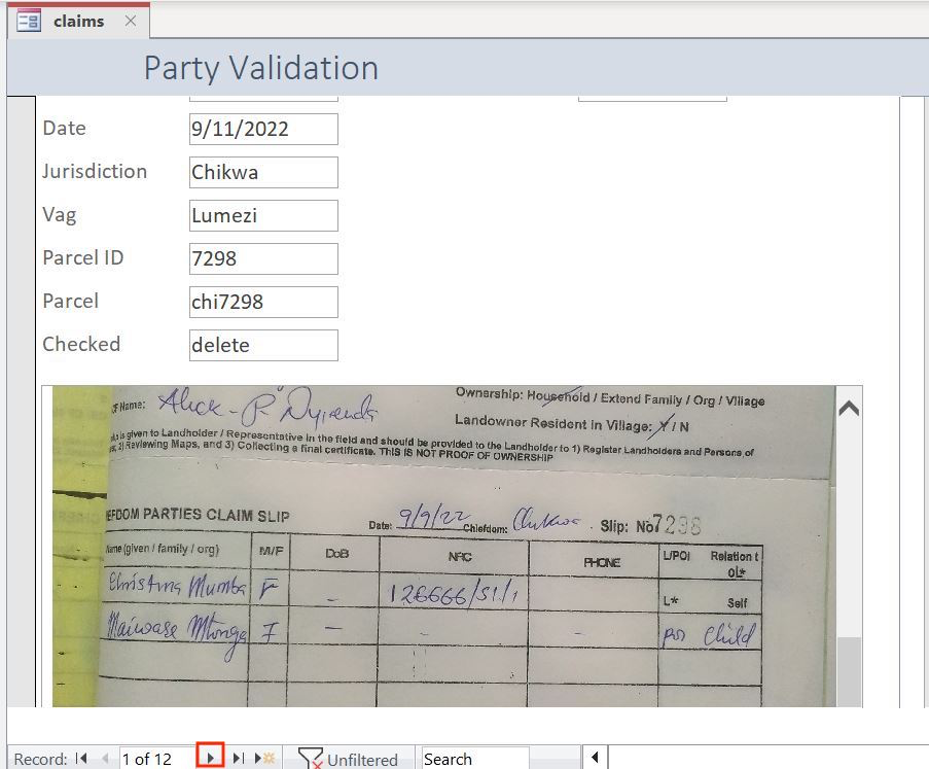 claims
Party Validation
Date 9/11/2022
Jurisdiction Chikwa
Vag Lumezi
Parcel ID 7298
Parcel chi7298
Checked delete
Name: Alick - P Nyirenda
Ownership: Household / Extend Family / Org / Village
Landowner Resident in Village: Y / N
is given to Landholder / Representative in the field and should be provided to the Landholder to 1) Register Landholders and Persons of
2) Reviewing Maps, and 3) Collecting a final certificate. THIS IS NOT PROOF OF OWNERSHIP
EFDOM PARTIES CLAIM SLIP Date: 9/9/22 Chiefdom: Chikwa . Slip: No 7298
Name (given / family / org) M/F DoB NRC PHONE L/POI Relation t oL*
Christina Mumba F - 126666/51/1 L* Self
Mtonga F - - - POI Child
Record: 1 of 12 Unfiltered Search